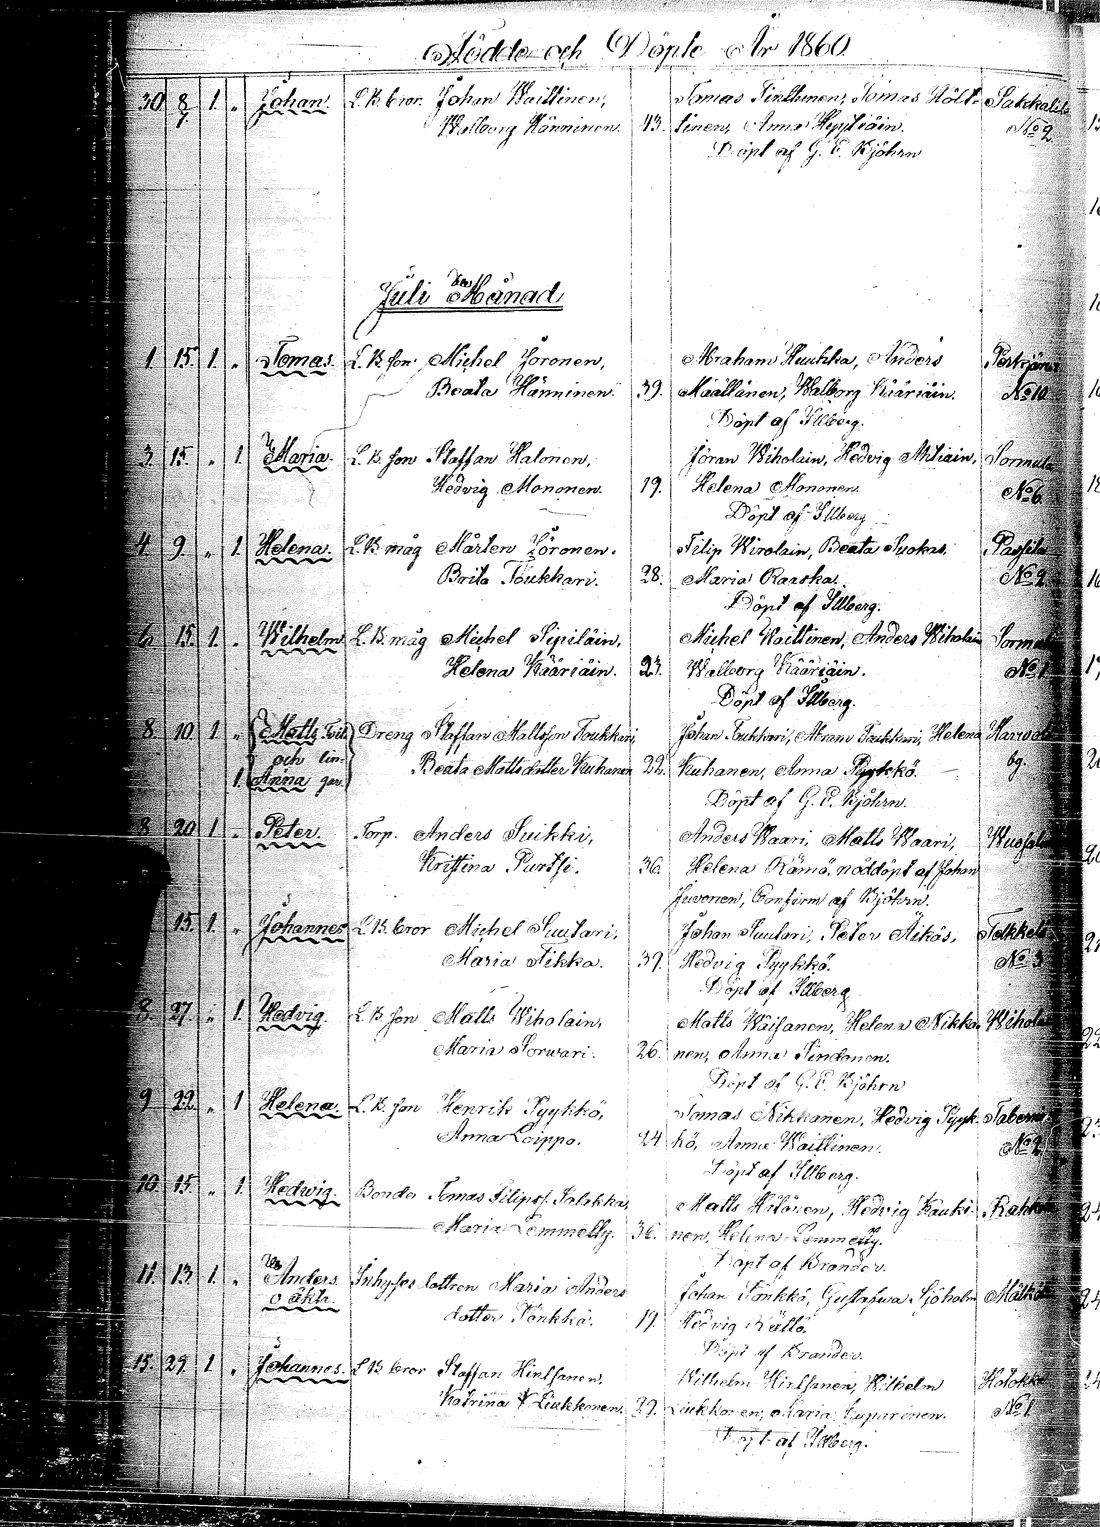 Födde och Döpte År 1860
30 8/7 1. „ Johan. L. B. bror. Johan Waittinen, Tomas Tinttunen, Tomas Hölt- Sakkalis
Walborg Hänninen. 43. tinen, Anna Hyytiäin. No 2.
Döpt af G. E. Bjöhrn
Juli Månad
1 15. 1. „ Tomas. L. B. son Michel Joronen, Abraham Huukka, Anders Perkjärvi
Beata Hänninen. 39. Määttänen, Walborg Kääriäin. No 10.
Döpt af Illberg.
3. 15. „ 1. Maria. L. B. son Staffan Halonen, Jöran Wiholain, Hedvig Ahtiain, Sormula
Hedvig Mononen. 19. Helena Mononen. No 6.
Döpt af Illberg
4. 9. „ 1. Helena. L. B. måg Mårten Joronen. Filip Wirolain, Beata Suokas. Passila
Brita Toukkari. 28. Maria Raaska. No 2.
Döpt af Illberg.
6. 15. 1. „ Wilhelm L. B. måg Michel Sipiläin, Michel Waittinen, Anders Wiholain Sormula
Helena Kääriäin. 23. Walborg Kääriäin. No 1.
Döpt af Illberg.
8. 10. 1. „ Matts Dreng Staffan Mattsson Toukkari, Johan Toukkari, Abram Toukkari, Helena
och
1. Anna Beata Mattsdotter Kuhanen 22. Kuhanen, Anna Pyykkö. by.
Döpt af G. E. Bjöhrn.
8. 20. 1. „ Peter. Torp. Anders Suikki, Anders Waari, Matts Waari,
Kristina Purtsi. 36. Helena Rämö, nöddöpt af Johan
Juvonen, Confirm af Bjöhrn.
15. 1. „ Johannes L. B. bror Michel Suutari, Johan Suutari, Peter Äikäs, Telkkälä
Maria Tikka. 39. Hedvig Pyykkö. No 3
Döpt af Illberg
8. 27. „ 1. Hedvig. L. B. son Matts Wiholain, Matts Wäisänen, Helena Nikka- Wihola
Maria Torwari. 26. nen, Anna Sindonen.
Döpt af G. E. Bjöhrn
9 22. „ 1 Helena. L. B. son Henrik Pyykkö, Tomas Nikkanen, Hedvig Pyyk-
Anna Loippo. 24 kö, Anna Waittinen. No 2
Döpt af Illberg.
10. 15. „ 1. Hedwig. Bonde Tomas Filipsf. Matts Hilönen, Hedvig Kauki-
Maria Lemmetty. 36. nen, Helena Lemmetty.
Döpt af Brander.
11. 13. 1. „ Anders Inhyses dottren Maria Anders Johan Pönkkö, Gustafwa Sjöholm
o äkta. dotter Pönkkö. 19. Hedvig Rättö.
Döpt af Brander.
15. 29. 1. „ Johannes. L. B. bror Staffan Hintsanen. Wilhelm Hintsanen, Wilhelm Hotokka
Katrina Liukkonen. 29. Liukkonen, Maria Suparinen. No 1
Döpt af Illberg.